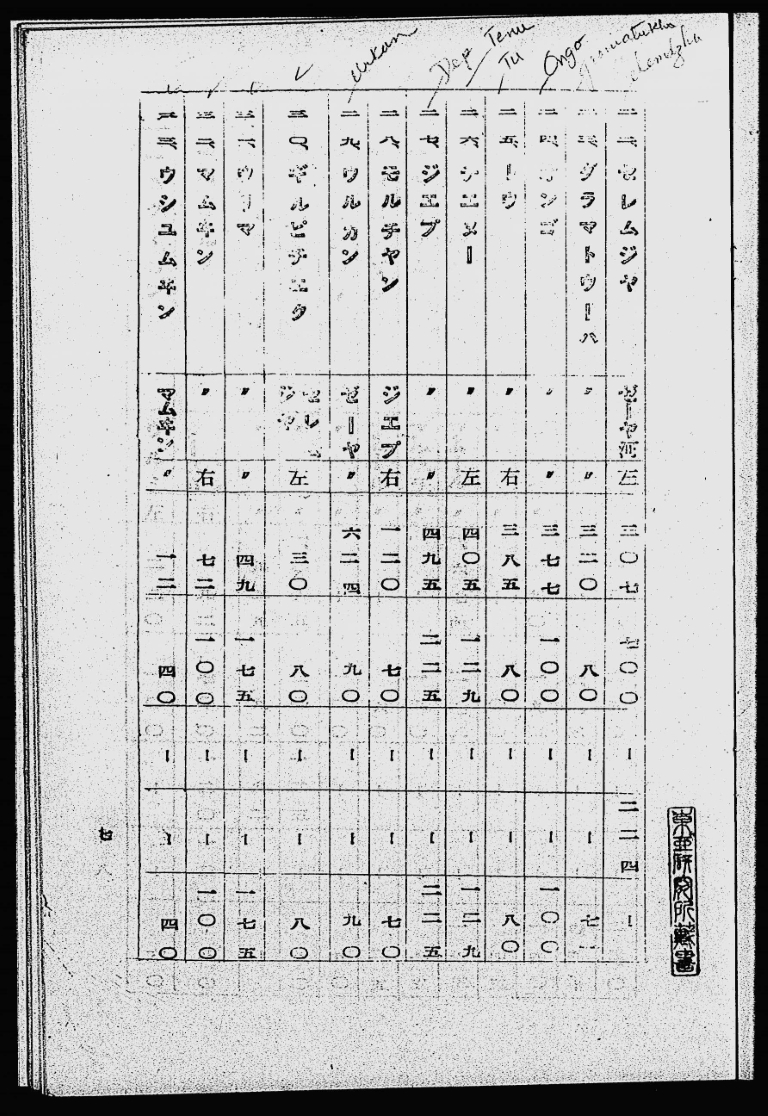 Urkan
Dep
Tenu
Tu
Ongo
gramatukha
二二、セレムジヤ ゼーヤ河 左 三〇七 七〇〇 ー 二二四 ー
二三、グラマトウーハ 〃 〃 三二〇 八〇 ー ー
二四、オンゴ 〃 〃 三七七 一〇〇 ー ー 一〇〇
二五、トウ 〃 右 三八五 八〇 ー ー 八〇
二六、テエヌー 〃 左 四〇五 一二九 ー ー 一二九
二七、ジエプ 〃 〃 四九五 二二五 ー ー 二二五
二八、モルチヤン ジエプ 右 一二〇 七〇 ー ー 七〇
二九、ウルカン ゼーヤ 〃 六二四 九〇 ー ー 九〇
三〇、ギルビチエク セレジヤ 左 三〇 八〇 ー ー 八〇
三一、ウリマ 〃 〃 四九 一七五 ー ー 一七五
三二、マムキン 〃 右 七二 一〇〇 ー ー 一〇〇
三三、ウシユムキン マムキン 〃 一二 四〇 ー ー 四〇
七
東亜研究所蔵書